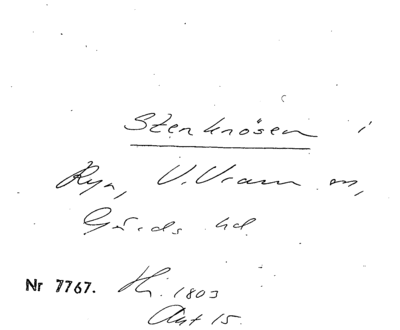 Stenknösen i
Rya, V. Vram sn,
Gärds hd.
Nr 7767. Hi. 1803
Akt 15.